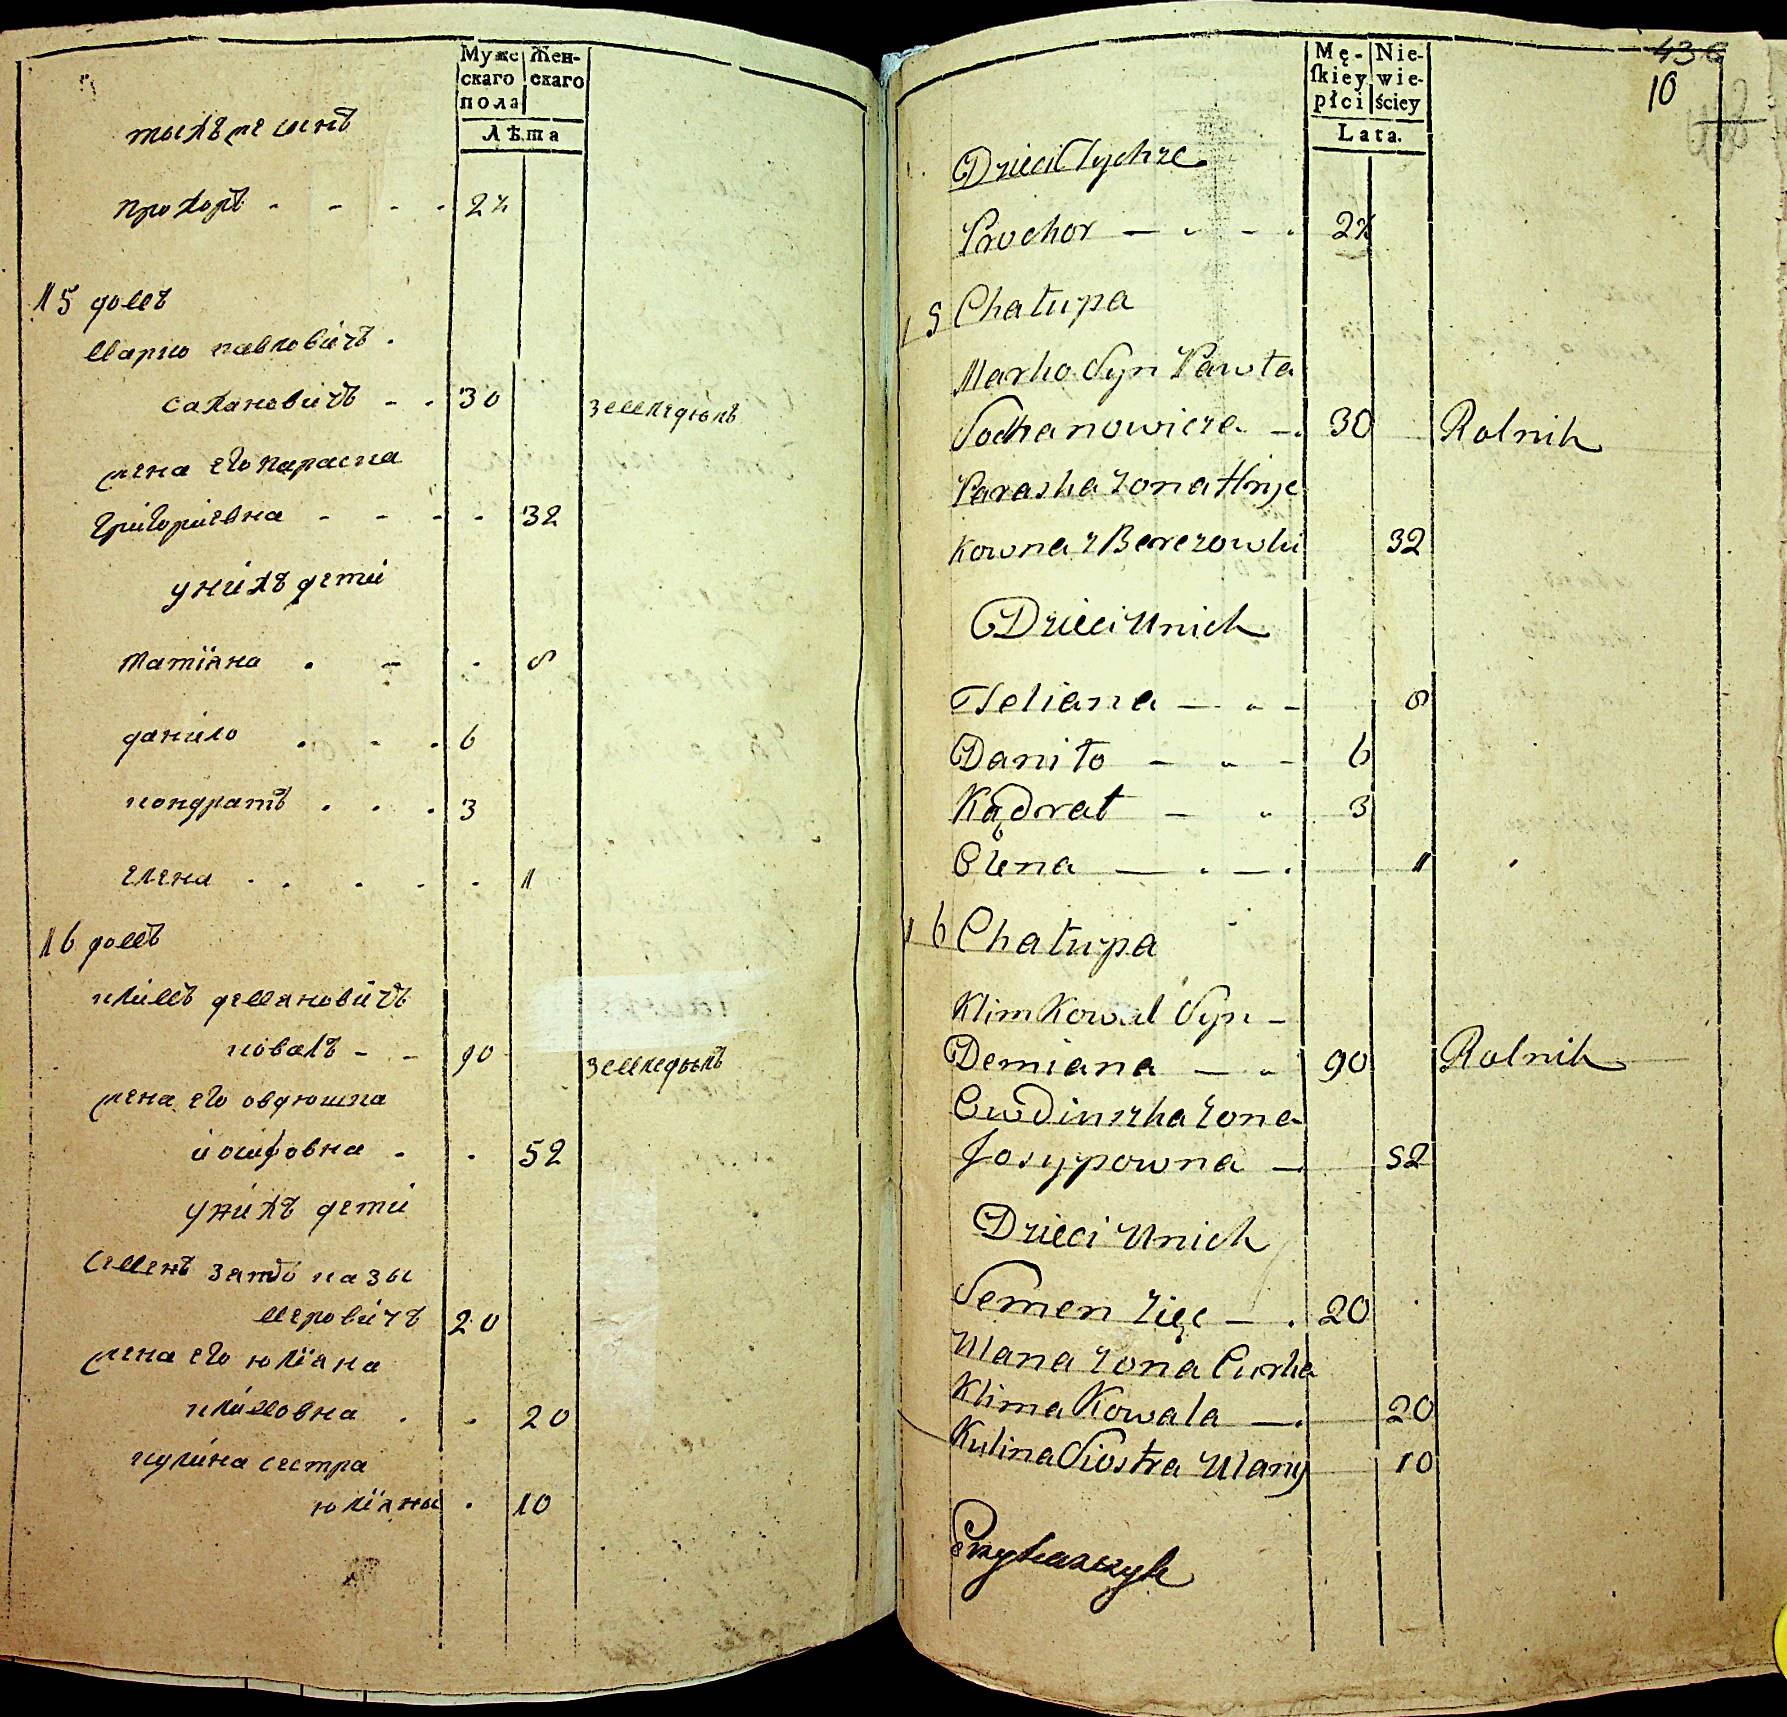 Мужс
скаго
пола
Жен-
скаго
Лѣта
тыхъже сынъ
прохоръ - - - - 2½
15 домъ
марко павловичъ .
сахановичъ - - 30 земледѣлъ
жена его параска
григориевна - - - - 32
у нихъ дети
татїяна . - - 8
данило . - . 6
кондратъ . . . 3
елена . . . . . 1
16 домъ
климъ демяновичъ
ковалъ - - 90 земледѣлъ
жена его овдюшка
иосифовна . . 52
у нихъ дети
семенъ зять казы
меровичъ 20
жена его юлїяна
климовна . . 20
кулина сестра
юлїяны . 10
Mę-
skiey
płci
Nie-
wie-
ściey
Lata.
436
10
Dzieci Tychże
Prochor — - - . 2½
15 Chałupa
Marko Syn Pawła
Sochanowicza — . 30 Rolnik
Paraska żona Hryc
kowna z Berezowki 32
Dzieci u nich
Tetiana — - — 8
Daniło — - — 6
Kądrat — - 3
Olena — . — . 1
16 Chałupa
Klim Kowal Syn -
Demiana — - 90 Rolnik
Owdiuszka żona
Josypowna — 52
Dzieci u nich
Semen zięc — . 20
Ulana żona Curka
Klima Kowala — . 20
Kulina Siostra Ulany 10
Przykaszczyk